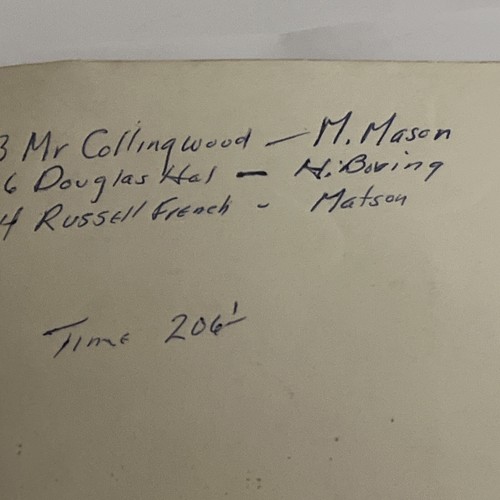 3 Mr Collingwood - M. Mason
6 Douglas Hal - H. Boving
4 Russell French - Matson
Time 206 1